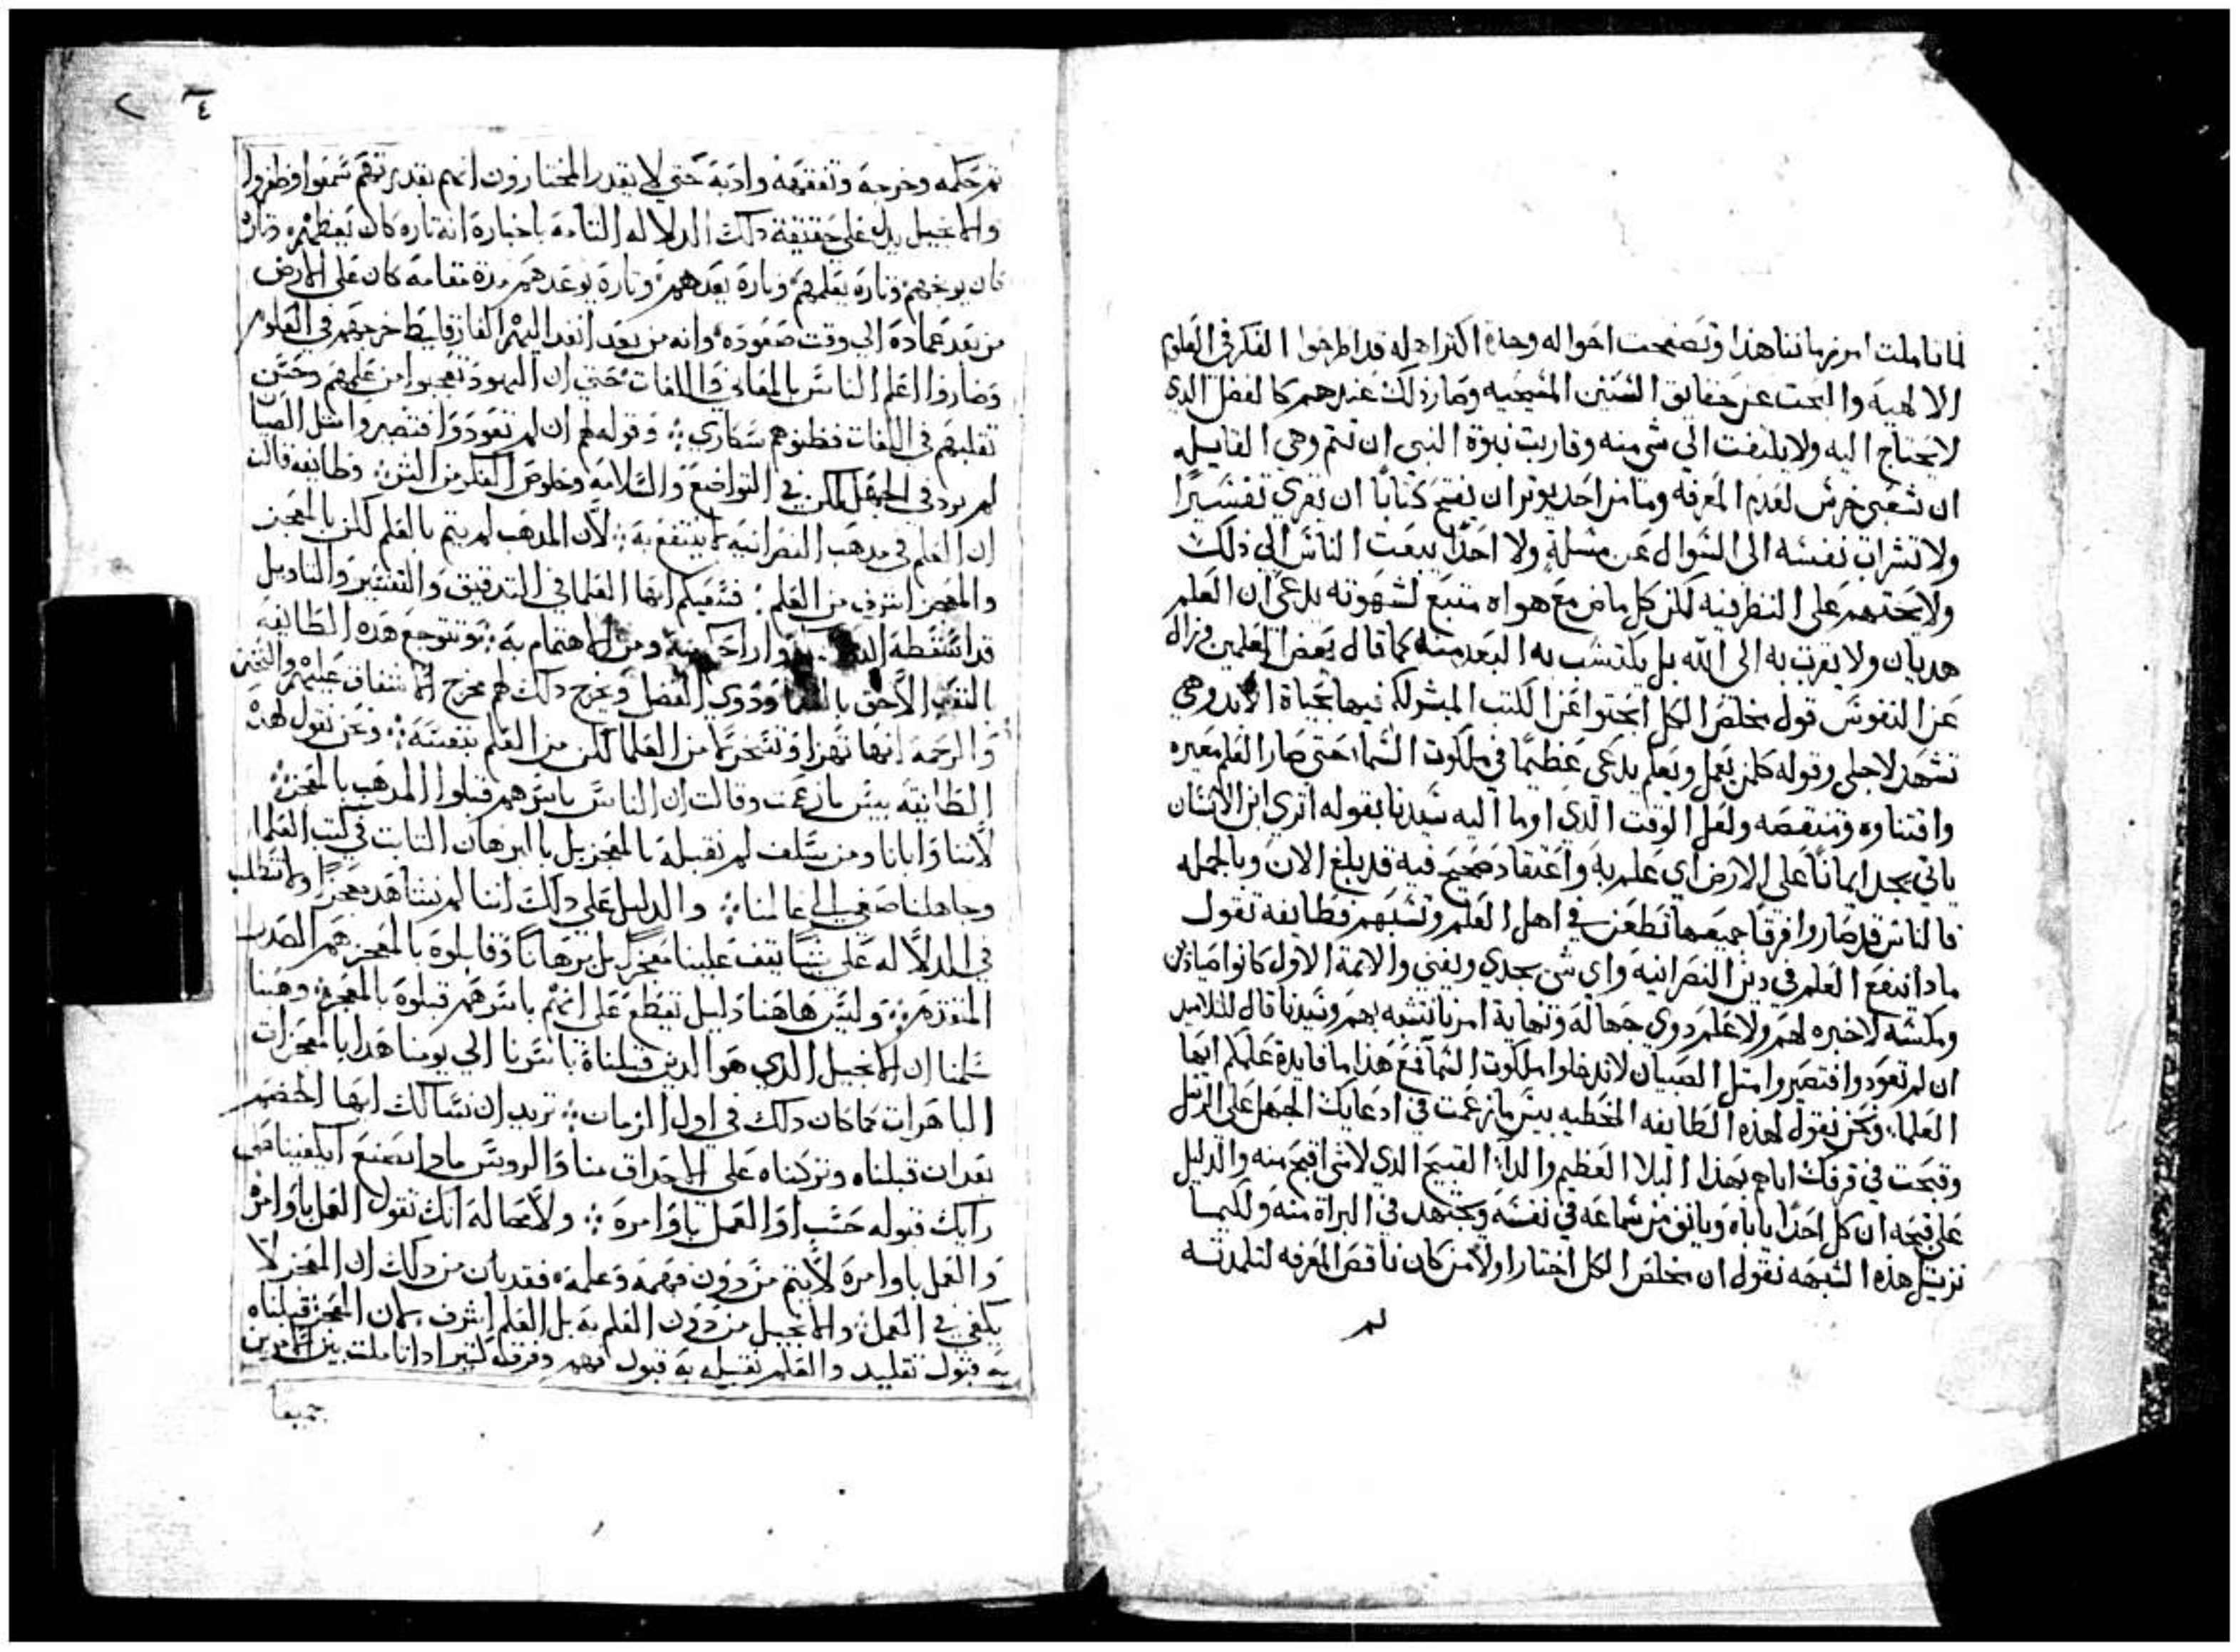 لما تاملت امر زماننا هذا وتصفحت احواله وجدت اكثر اهله قد اطرحوا الفكر في العلوم
الالهيه والبحت عن حقايق السنن المسيحيه وصار ذلك عندهم كالفضل الدي
لا يحتاج اليه ولا يلتفت الي شي منه وقاربت نبوة النبي ان تتم وهي القايله
ان شعبي خرس لعدم المعرفه وما من احد يوتر ان يفتح كتابا ان يقري تفسيرا
ولا تشراب نفسه الى السوال عن مسلة ولا احدا يبعت الناس الي ذلك
ولا يحتهم على النظر فيه لكن كل ماض مع هواه متبع لشهوته يدعى ان العلم
هديان ولا يقرب به الى الله بل يكتسب به البعد منه كما قال بعض المعلمين وزال
عن النفوس قول مخلص الكل ابحتوا عن الكتب المبشر لكم فيها بحياة الابد وهي
تشهد لاجلى وقوله كلمن يعمل ويعلم يدعى عظيما في ملكوت السما حتى صار العلم معيره
واقتناوه ومنقصه ولعل الوقت الدي اوما اليه سيدنا بقوله اتري ابن الانسان
ياتي يجد ايمانا على الارض اي علم به واعتقاد صحيح فيه قد بلغ الان وبالجمله
فالناس قد صاروا فرقا جميعها تطعن في اهل العلم وتسبهم فطايفه تقول
مادا ينفع العلم في دين النصرانية واي شي يجدي ويغني والايمة الاول كانوا صيادين
ومكسه لا خبره لهم ولا علم دوي جهاله ونهاية امرنا نتشبه بهم وسيدنا قال للتلاميد
ان لم تعودوا فتصيروا متل الصبيان لا تدخلوا ملكوت السما فمع هذا ما فايدة علمكم ايها
العلما ونحن نقول لهذه الطايفه المخطيه بيس ما زعمت في ادعايك الجهل على الرسل
وقبحت في قرفك اياهم بهذا البلا العظيم والدا القبيح الدي لا شي اقبح منه والدليل
على قبحه ان كل احدا ياباه ويانف من سماعه في نفسه ويجتهد في البراة منه ولكيما
نزيل هذه الشبهه نقول ان مخلص الكل اختار اولا من كان ناقص المعرفه لتلمدته
لم
٤ ٢
تم حكمه وخرجه وتفقهه وادبه حتي لا يقدر المختارون انهم بقدرتهم سمعوا وظفروا
والانجيل يدل علي حقيقة دلك الدلاله التامه باخباره انه تاره كان يعظهم وتارة
كان يوبخهم وتاره يعلمهم وتارة يعدهم وتارة يوعدهم مدة مقامه كان على الارض
من بعد عماده الي وقت صعوده وانه من بعد انفد اليهم الفارقليط خرجهم في العلوم
وصاروا اعلم الناس بالمعاني واللغات حتي ان اليهود تعجبوا من علمهم وحسن
تقلبهم في اللغات فظنوهم سكاري وقوله لهم ان لم تعودوا فتصيروا متل الصبيا
لم يرد في الجهل لكن في التواضع والسلامه وخلوص الفكر من الشر وطايفه قالت
ان العلم في مدهب النصرانيه لا ينتفع به لان المدهب لم يتم بالعلم لكن بالمعجز
والمعجز اشرف من العلم فتعبكم ايها العلما في التدقيق والتفسير والتاويل
قد اسقطه ومن الاهتمام به تتوجع هده الطايفه
بالتعب الاحق ودوي الفضل وتخرج دلك لهم مخرج الاشفاق عليهم والتحنن
والرحمه انها تهزا وتسخر لا من العلما لكن من العلم بنفسه ونحن نقول لهده
الطايفه بيس ما زعمت وقالت ان الناس باسرهم قبلوا المدهب بالمعجز
لاننا وابانا ومن سلف لم نقبله بالمعجز بل بالبرهان التابت في كتب العلما
وجاهلنا صغي الي عالمنا والدليل علي دلك اننا لم نشاهد معجزا ولا نطلب
في الدلاله على شيا يتف علينا معجزا بل برهانا وقابلوه بالمعجز هم الصدر
المتقدم وليس هاهنا دليل تقطع على انهم باسرهم قبلوه بالمعجز وهبنا
سلمنا ان الانجيل الدي هو الدين قبلناه باسرنا الي يومنا هدا بالمعجزات
الباهرات كما كان دلك في اول الزمان نريد ان نسالك ايها الخصم
بعد ان قبلناه وتركناه على الاحداق منا والرووس مادا نصنع ايكفينا في
رايك قبوله حسب او العمل باوامره ولا محاله انك تقول العمل باوامره
والعمل باوامره لا يتم من دون فهمه وعلمه فقد بان من دلك ان المعجز لا
يكفي في العمل والانجيل من دون العلم به بل العلم اشرف لان المعجز قبلناه
به قبول تقليد والعلم نقبله به قبول فهم وفرق كبير ادا تاملت بين الامرين
جميعا